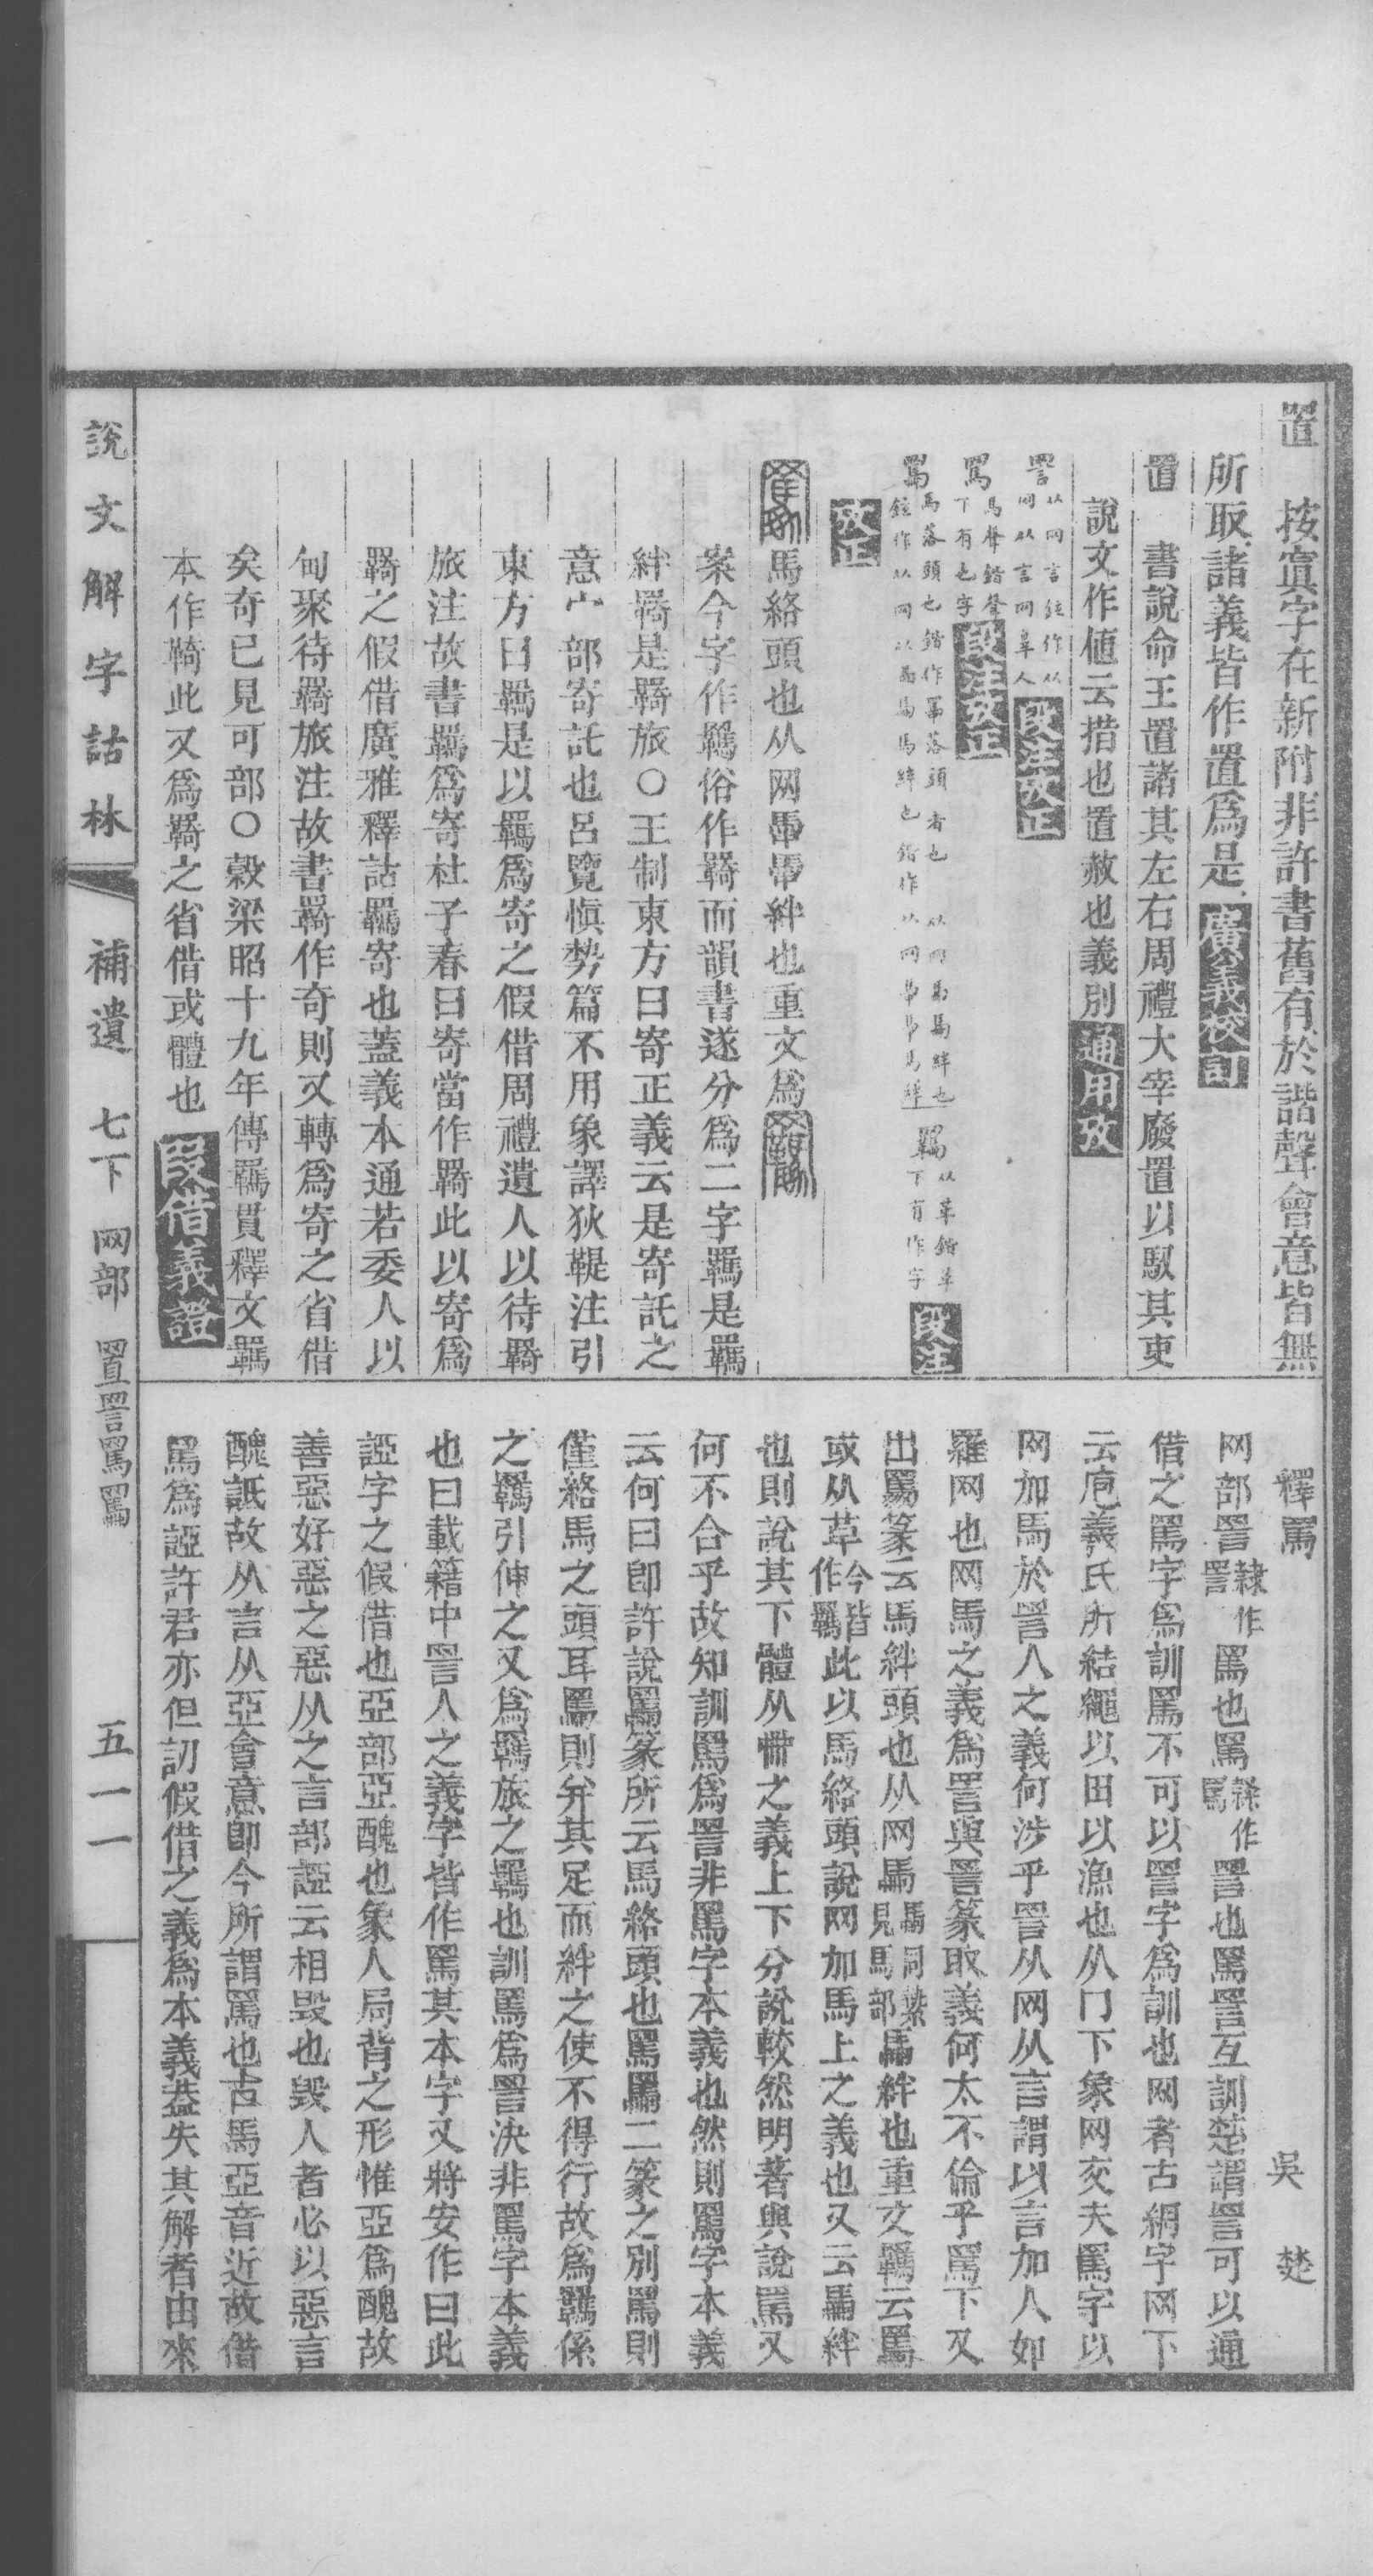 置　按寘字在新附非許書舊有於諧聲會意皆無
所取諸義皆作置爲是廣義校訂
置　書說命王置諸其左右周禮大宰廢置以馭其吏
說文作値云措也置赦也義別通用攷
詈　从网言注作从网从言网辠人段注攷正
罵　馬聲鍇聲下有也字段注攷正
馬絡頭也从网馽馽絆也重文爲
案今字作羈俗作羇而韻書遂分爲二字羈是羈
絆羇是羇旅〇王制東方曰寄正義云是寄託之
意宀部寄託也呂覽愼勢篇不用象譯狄鞮注引
東方曰羈是以羈爲寄之假借周禮遺人以待羇
旅注故書羈爲寄杜子春曰寄當作羇此以寄爲
羇之假借廣雅釋詁羈寄也蓋義本通若委人以
甸聚待羇旅注故書羇作奇則又轉爲寄之省借
矣奇已見可部〇穀梁昭十九年傳羈貫釋文羈
本作鞿此又爲羇之省借或體也叚借義證
釋罵　吳楚
网部詈隸作詈罵也罵隸作罵詈也罵詈互訓楚謂詈可以通
借之罵字爲訓罵不可以詈字爲訓也网者古網字网下
云庖羲氏所結繩以田以漁也从冂下象网交夫罵字以
网加馬於詈人之義何涉乎詈从网从言謂以言加人如
羅网也网馬之義爲詈與詈篆取義何太不倫乎罵下又
出羈篆云馬絆頭也从网馽馽同縶見馬部馽絆也重文羈云羈
或从革今皆作羈此以馬絡頭說网加馬上之義也又云馽絆
也則說其下體从馽之義上下分說較然明著與說罵又
何不合乎故知訓罵爲詈非罵字本義也然則罵字本義
云何曰卽許說羈篆所云馬絡頭也罵羈二篆之別罵則
僅絡馬之頭耳羈則幷其足而絆之使不得行故爲羈係
之羈引伸之又爲羈旅之羈也訓罵爲詈決非罵字本義
也曰載籍中詈人之義字皆作罵其本字又將安作曰此
誣字之假借也亞部亞醜也象人局背之形惟亞爲醜故
善惡好惡之惡从之言部誣云相毀也毀人者必以惡言
醜詆故从言从亞會意卽今所謂罵也古馬亞音近故借
罵爲誣許君亦但訒假借之義爲本義蓋失其解者由來
說文解字詁林　補遺　七下　网部　置詈罵羈　五一一